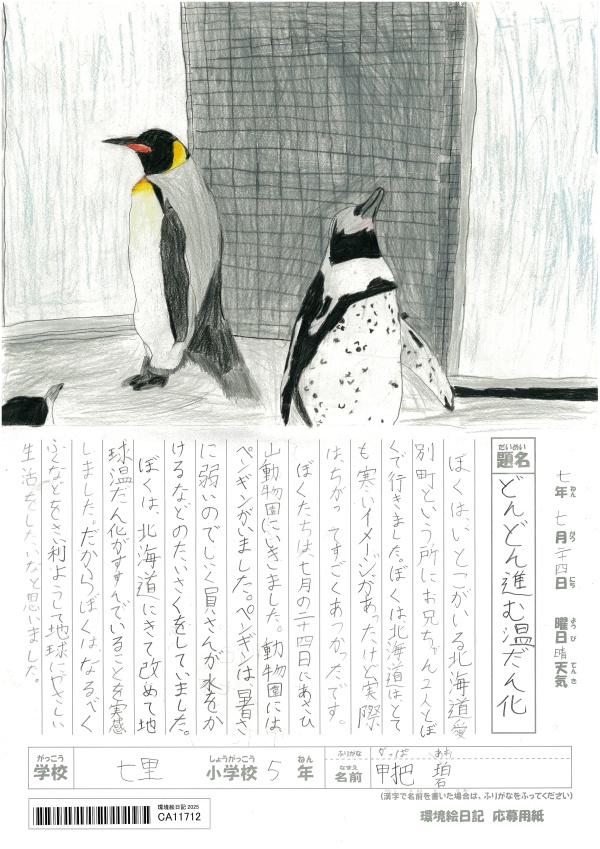 七年七月二十四日 曜日 晴 天気
ねん がつ にち ようび てんき
だいめい
題名 どんどん進む温だん化
ぼくは、いとこがいる北海道愛
別町という所にお兄ちゃん2人とぼ
くで行きました。ぼくは北海道はとて
も寒いイメージがあったけど実際
は、ちがってすごくあつかったです。
ぼくたちは、七月の二十四日にあさひ
山動物園にいきました。動物園には
ペンギンがいました。ペンギンは、暑さ
に弱いのでしいく員さんが水をか
けるなどのたいさくをしていました。
ぼくは、北海道にきて改めて地
球温だん化がすすんでいることを実感
しました。だからぼくは、なるべく
ふくなどをさい利ようして地球にやさしい
生活をしたいなと思いました。
がっこう
学校 七里
しょうがっこう
小学校 5
ねん
年
ふりがな がっぱ あお
なまえ
名前 甲把 碧
(漢字で名前を書いた場合は、ふりがなをふってください)
環境絵日記 応募用紙
環境絵日記 2025
CA11712